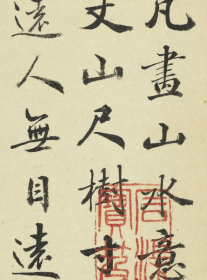 凡畫山水意
丈山尺樹寸
遠人無目遠